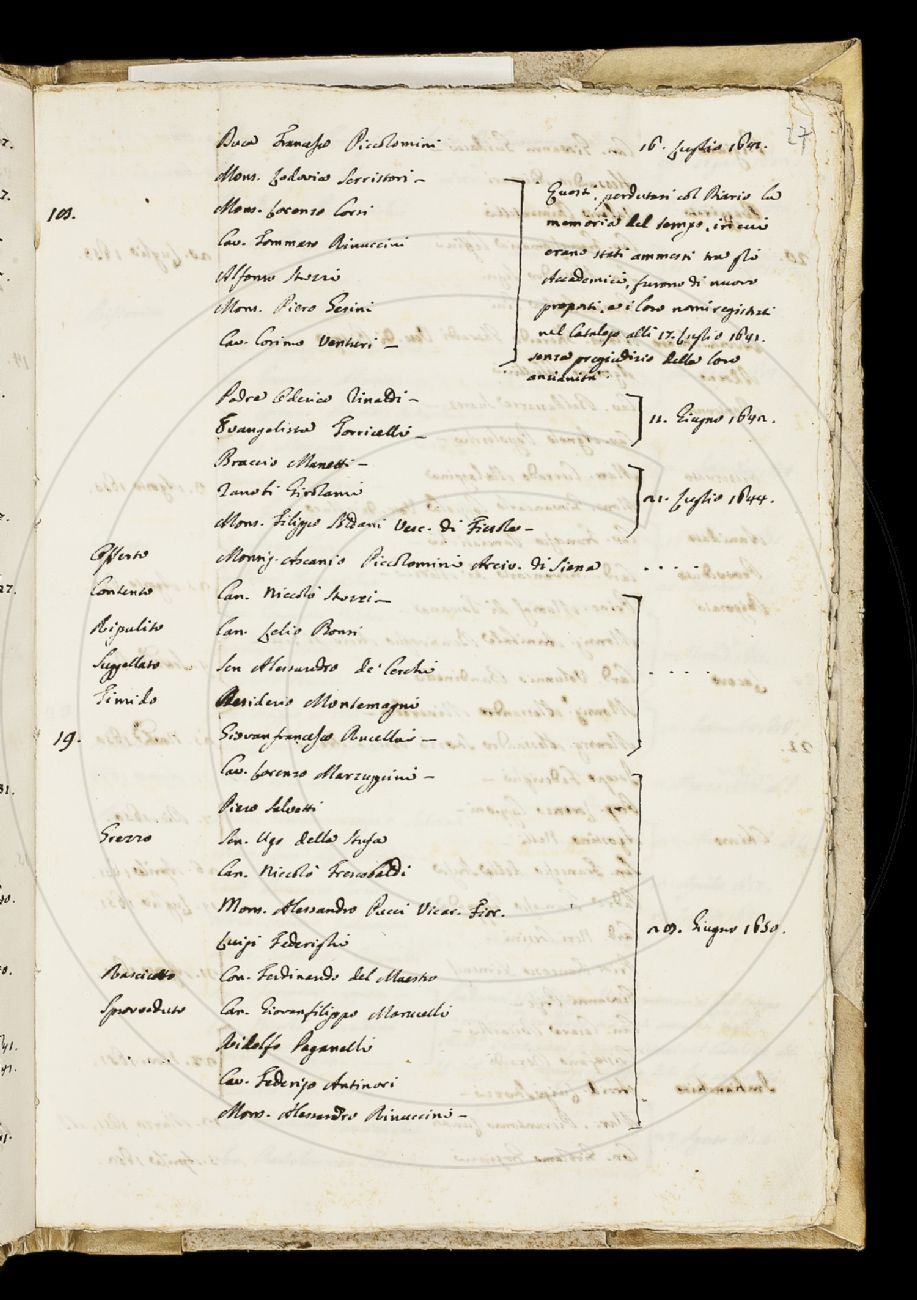 27
Duca Francesco Piccolomini 16. Luglio 1641.
Mons. Lodovico Serristori -
103. Mons. Lorenzo Corsi
Cav. Tommaso Rinuccini
Alfonso Strozzi
Mons. Piero
Cav. Cosimo Venturi -
Questi, perdutasi col Diario la
memoria del tempo, in cui
erano stati ammessi tra gli
Accademici, furono di nuovo
proposti, e i loro nomi registrati
nel Catalogo alli 17. Luglio 1641.
senza pregiudizio della loro
anzianità.
Padre Oderico Rinaldi -
Evangelista Torricelli -
11. Giugno 1642.
Braccio Manetti -
Zanobi Girolami
Mons. Filippo Soldani Vesc. di Fiesole -
21. Luglio 1644.
Offerto Monsig. Ascanio Piccolomini Arciv. di Siena . . . .
Contento Can. Niccolò Strozzi -
Ripulito Can. Lelio Bonsi
Suggellato Sen Alessandro de' Cerchi . . . .
Timido Desiderio Montemagni
19. Giovanfrancesco Rucellai -
Cav. Lorenzo Marzuppini -
Piero Salvetti
Grezzo Sen. Ugo della Stufa
Can. Niccolò Frescobaldi
Mons. Alessandro Pucci Vicar. Fior.
Luigi Federighi
23. Giugno 1650.
Can. Ferdinando del Maestro
Sprovveduto Can. Giovanfilippo Marucelli
Ridolfo Paganelli
Cav. Federigo Antinori
Mons. Alessandro Rinuccini -